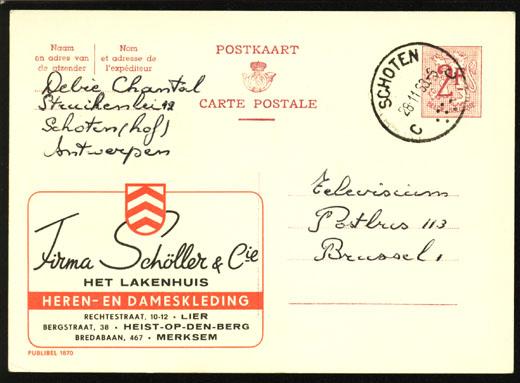 Naam en adres van de afzender
Nom et adresse de l'expéditeur
POSTKAART
CARTE POSTALE
2F
SCHOTEN
C
C
Debie Chantal
Schoten (hof)
Antwerpen
Televisium
Postbus 113
Brussel 1
Firma Schöller & Cie
HET LAKENHUIS
HEREN- EN DAMESKLEDING
RECHTESTRAAT, 10-12 • LIER
BERGSTRAAT, 38 • HEIST-OP-DEN-BERG
BREDABAAN, 467 • MERKSEM
PUBLIBEL 1870